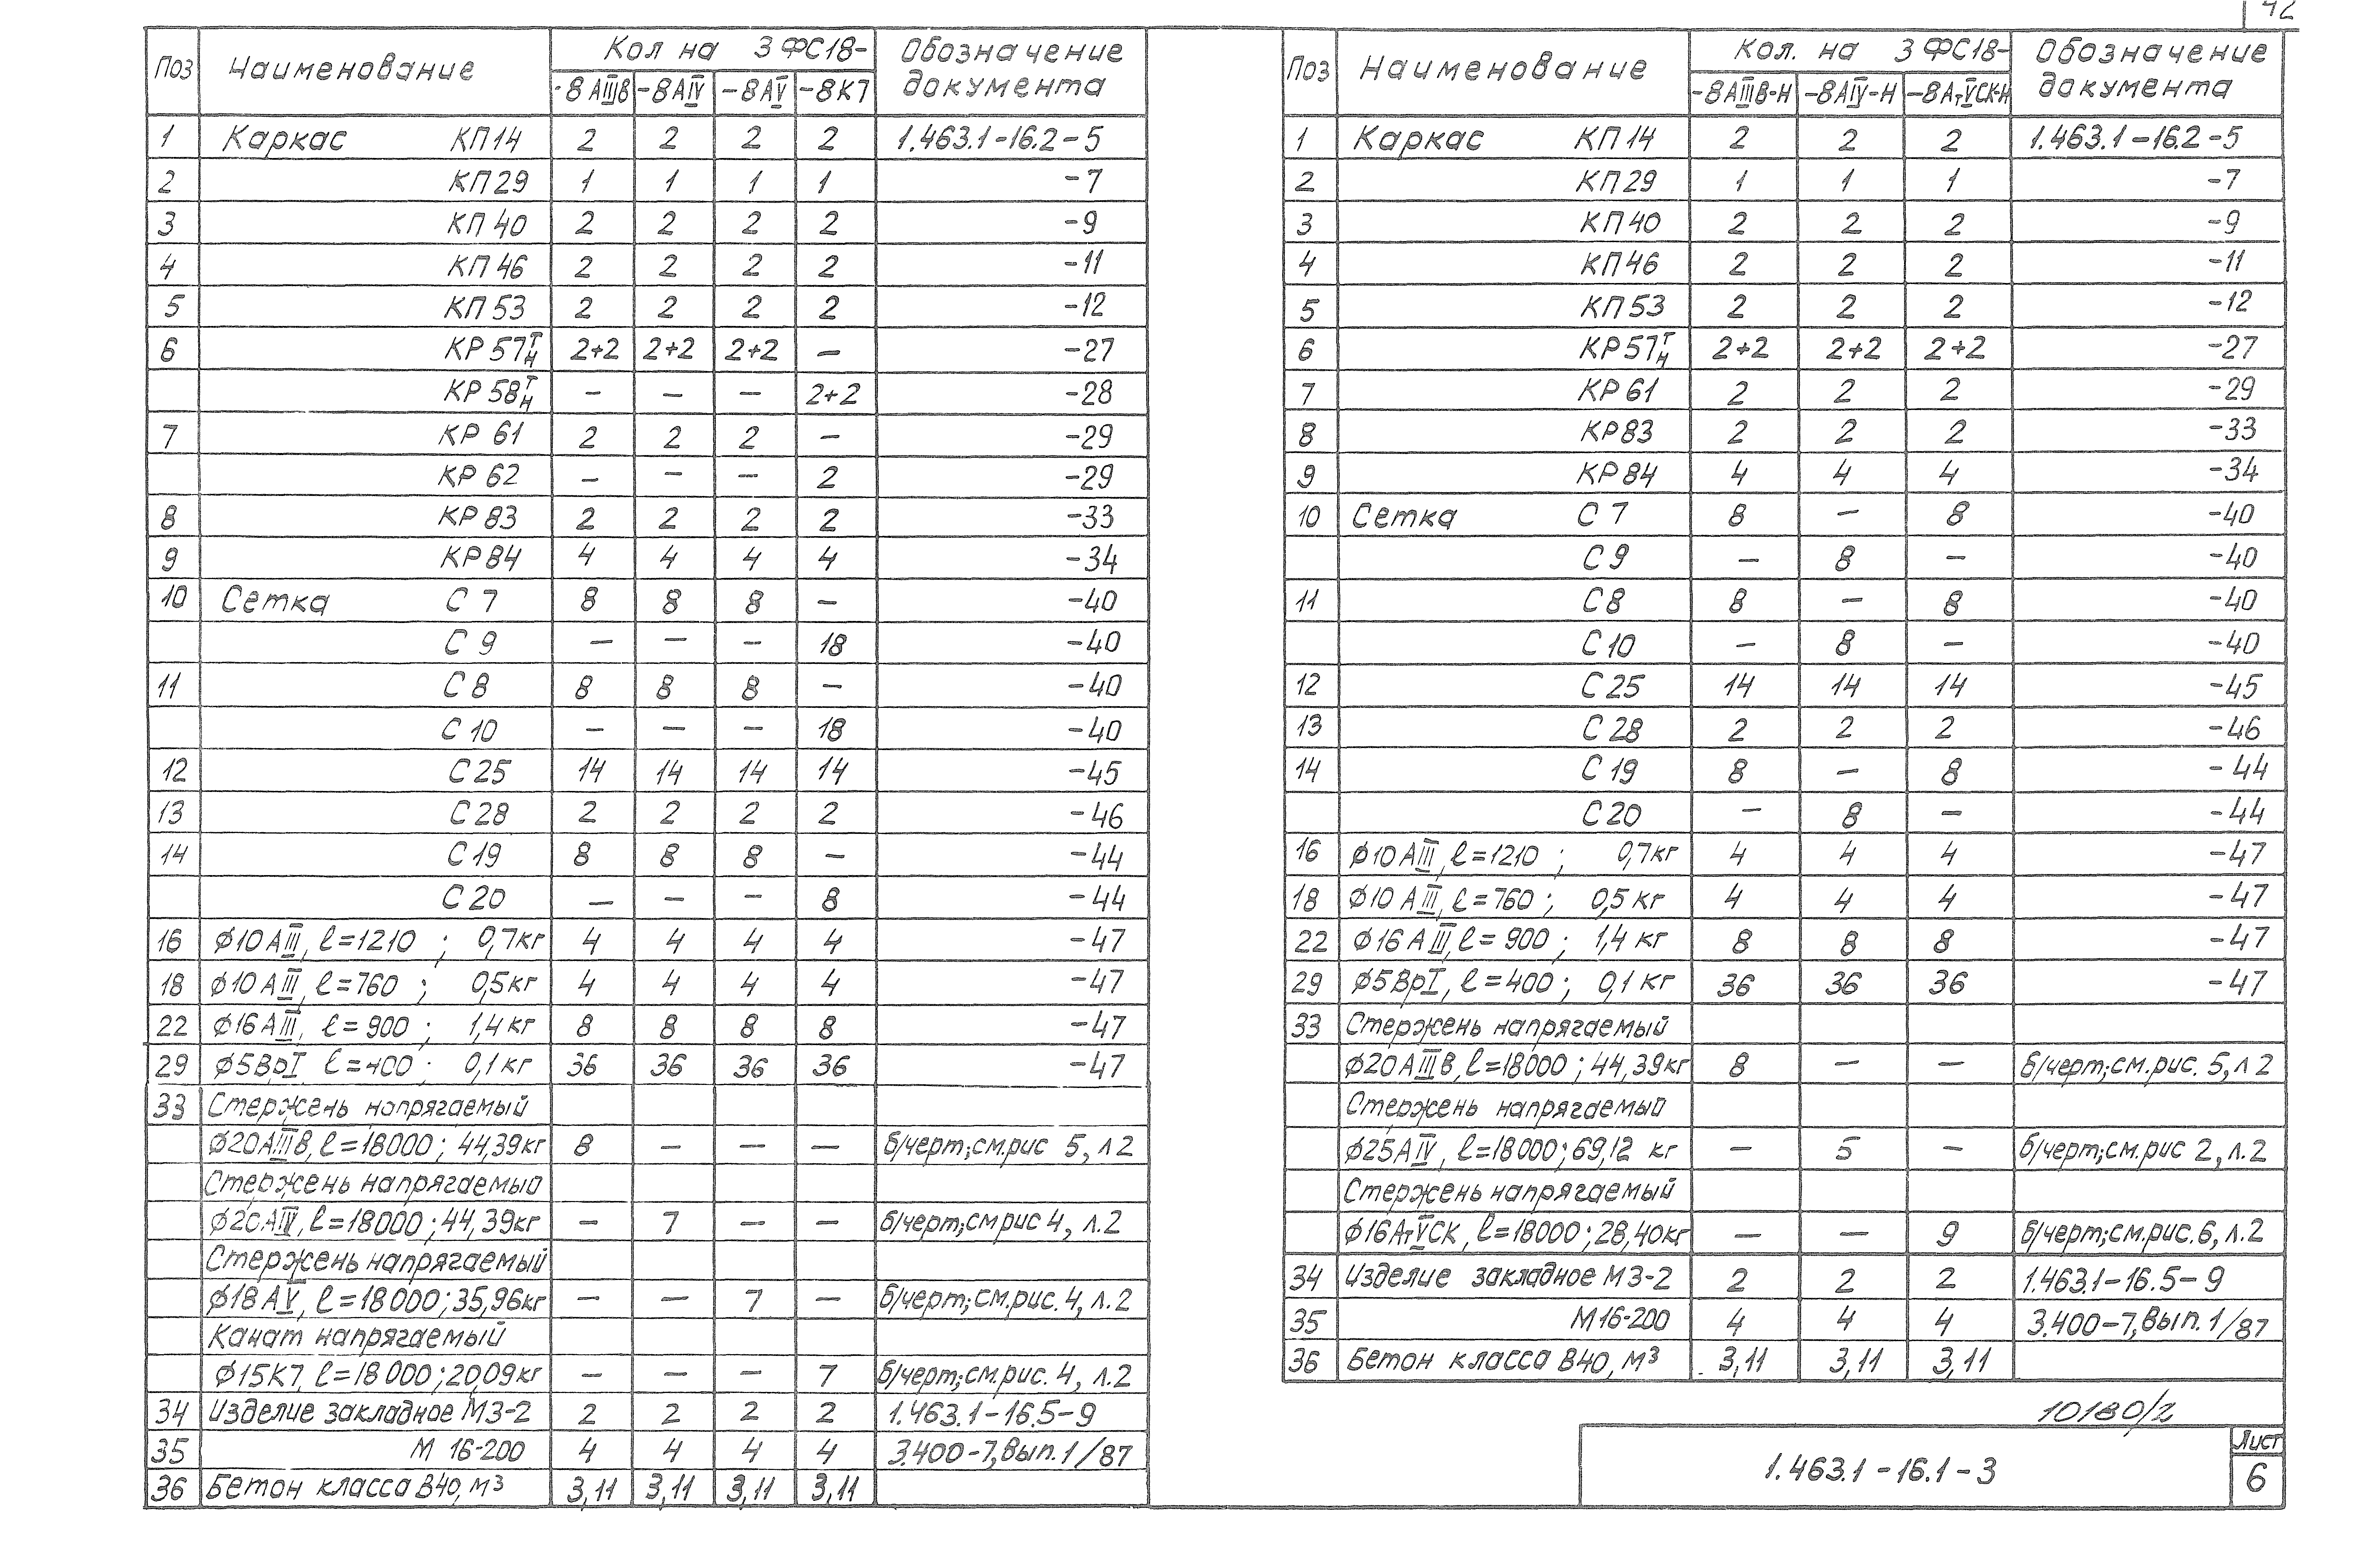 42
Поз Наименование Кол на 3ФС18- Обозначение документа
-8АIIIВ -8АIV -8АV -8К7
1 Каркас КП14 2 2 2 2 1.463.1-16.2-5
2 КП29 1 1 1 1 -7
3 КП40 2 2 2 2 -9
4 КП46 2 2 2 2 -11
5 КП53 2 2 2 2 -12
6 КР57Т/Н 2+2 2+2 2+2 – -27
КР58Т/Н – – – 2+2 -28
7 КР 61 2 2 2 – -29
КР 62 – – – 2 -29
8 КР83 2 2 2 2 -33
9 КР84 4 4 4 4 -34
10 Сетка С 7 8 8 8 – -40
С 9 – – – 18 -40
11 С 8 8 8 8 – -40
С 10 – – – 18 -40
12 С 25 14 14 14 14 -45
13 С 28 2 2 2 2 -46
14 С 19 8 8 8 – -44
С 20 – – – 8 -44
16 ∅10АIII, ℓ=1210 ; 0,7кг 4 4 4 4 -47
18 ∅10АIII, ℓ=760 ; 0,5кг 4 4 4 4 -47
22 ∅16АIII, ℓ=900 ; 1,4кг 8 8 8 8 -47
29 ∅5ВрI ℓ=400 ; 0,1кг 36 36 36 36 -47
33 Стержень напрягаемый
∅20АIIIВ, ℓ=18000; 44,39кг 8 – – – б/черт; см.рис 5, л2
Стержень напрягаемый
∅20АIV, ℓ=18000; 44,39кг – 7 – – б/черт; см рис 4, л.2
Стержень напрягаемый
∅18АV, ℓ=18000; 35,96кг – – 7 – б/черт; см.рис. 4, л.2
Канат напрягаемый
∅15К7, ℓ=18000; 20,09кг – – – 7 б/черт; см.рис. 4, л.2
34 Изделие закладное МЗ-2 2 2 2 2 1.463.1-16.5-9
35 М 16-200 4 4 4 4 3.400-7, Вып.1/87
36 Бетон класса В40, м³ 3,11 3,11 3,11 3,11
Поз Наименование Кол. на 3ФС18- Обозначение документа
-8АIIIВ-Н -8АIV-Н -8АтVСК-Н
1 Каркас КП14 2 2 2 1.463.1-16.2-5
2 КП29 1 1 1 -7
3 КП40 2 2 2 -9
4 КП46 2 2 2 -11
5 КП53 2 2 2 -12
6 КР57Т/Н 2+2 2+2 2+2 -27
7 КР 61 2 2 2 -29
8 КР83 2 2 2 -33
9 КР84 4 4 4 -34
10 Сетка С 7 8 – 8 -40
С 9 – 8 – -40
11 С 8 8 – 8 -40
С 10 – 8 – -40
12 С 25 14 14 14 -45
13 С 28 2 2 2 -46
14 С 19 8 – 8 -44
С 20 – 8 – -44
16 ∅10АIII, ℓ=1210 ; 0,7кг 4 4 4 -47
18 ∅10АIII, ℓ=760 ; 0,5кг 4 4 4 -47
22 ∅16АIII, ℓ=900 ; 1,4 кг 8 8 8 -47
29 ∅5ВрI, ℓ=400 ; 0,1 кг 36 36 36 -47
33 Стержень напрягаемый
∅20АIIIВ, ℓ=18000; 44,39кг 8 – – б/черт; см.рис. 5, л 2
Стержень напрягаемый
∅25АIV, ℓ=18000; 69,12 кг – 5 – б/черт; см.рис 2, л.2
Стержень напрягаемый
∅16АтVСК, ℓ=18000; 28,40кг – – 9 б/черт; см.рис. 6, л.2
34 Изделие закладное МЗ-2 2 2 2 1.463.1-16.5-9
35 М16-200 4 4 4 3.400-7, Вып.1/87
36 Бетон класса В40, м³ 3,11 3,11 3,11
10180/2
1.463.1-16.1-3
Лист
6